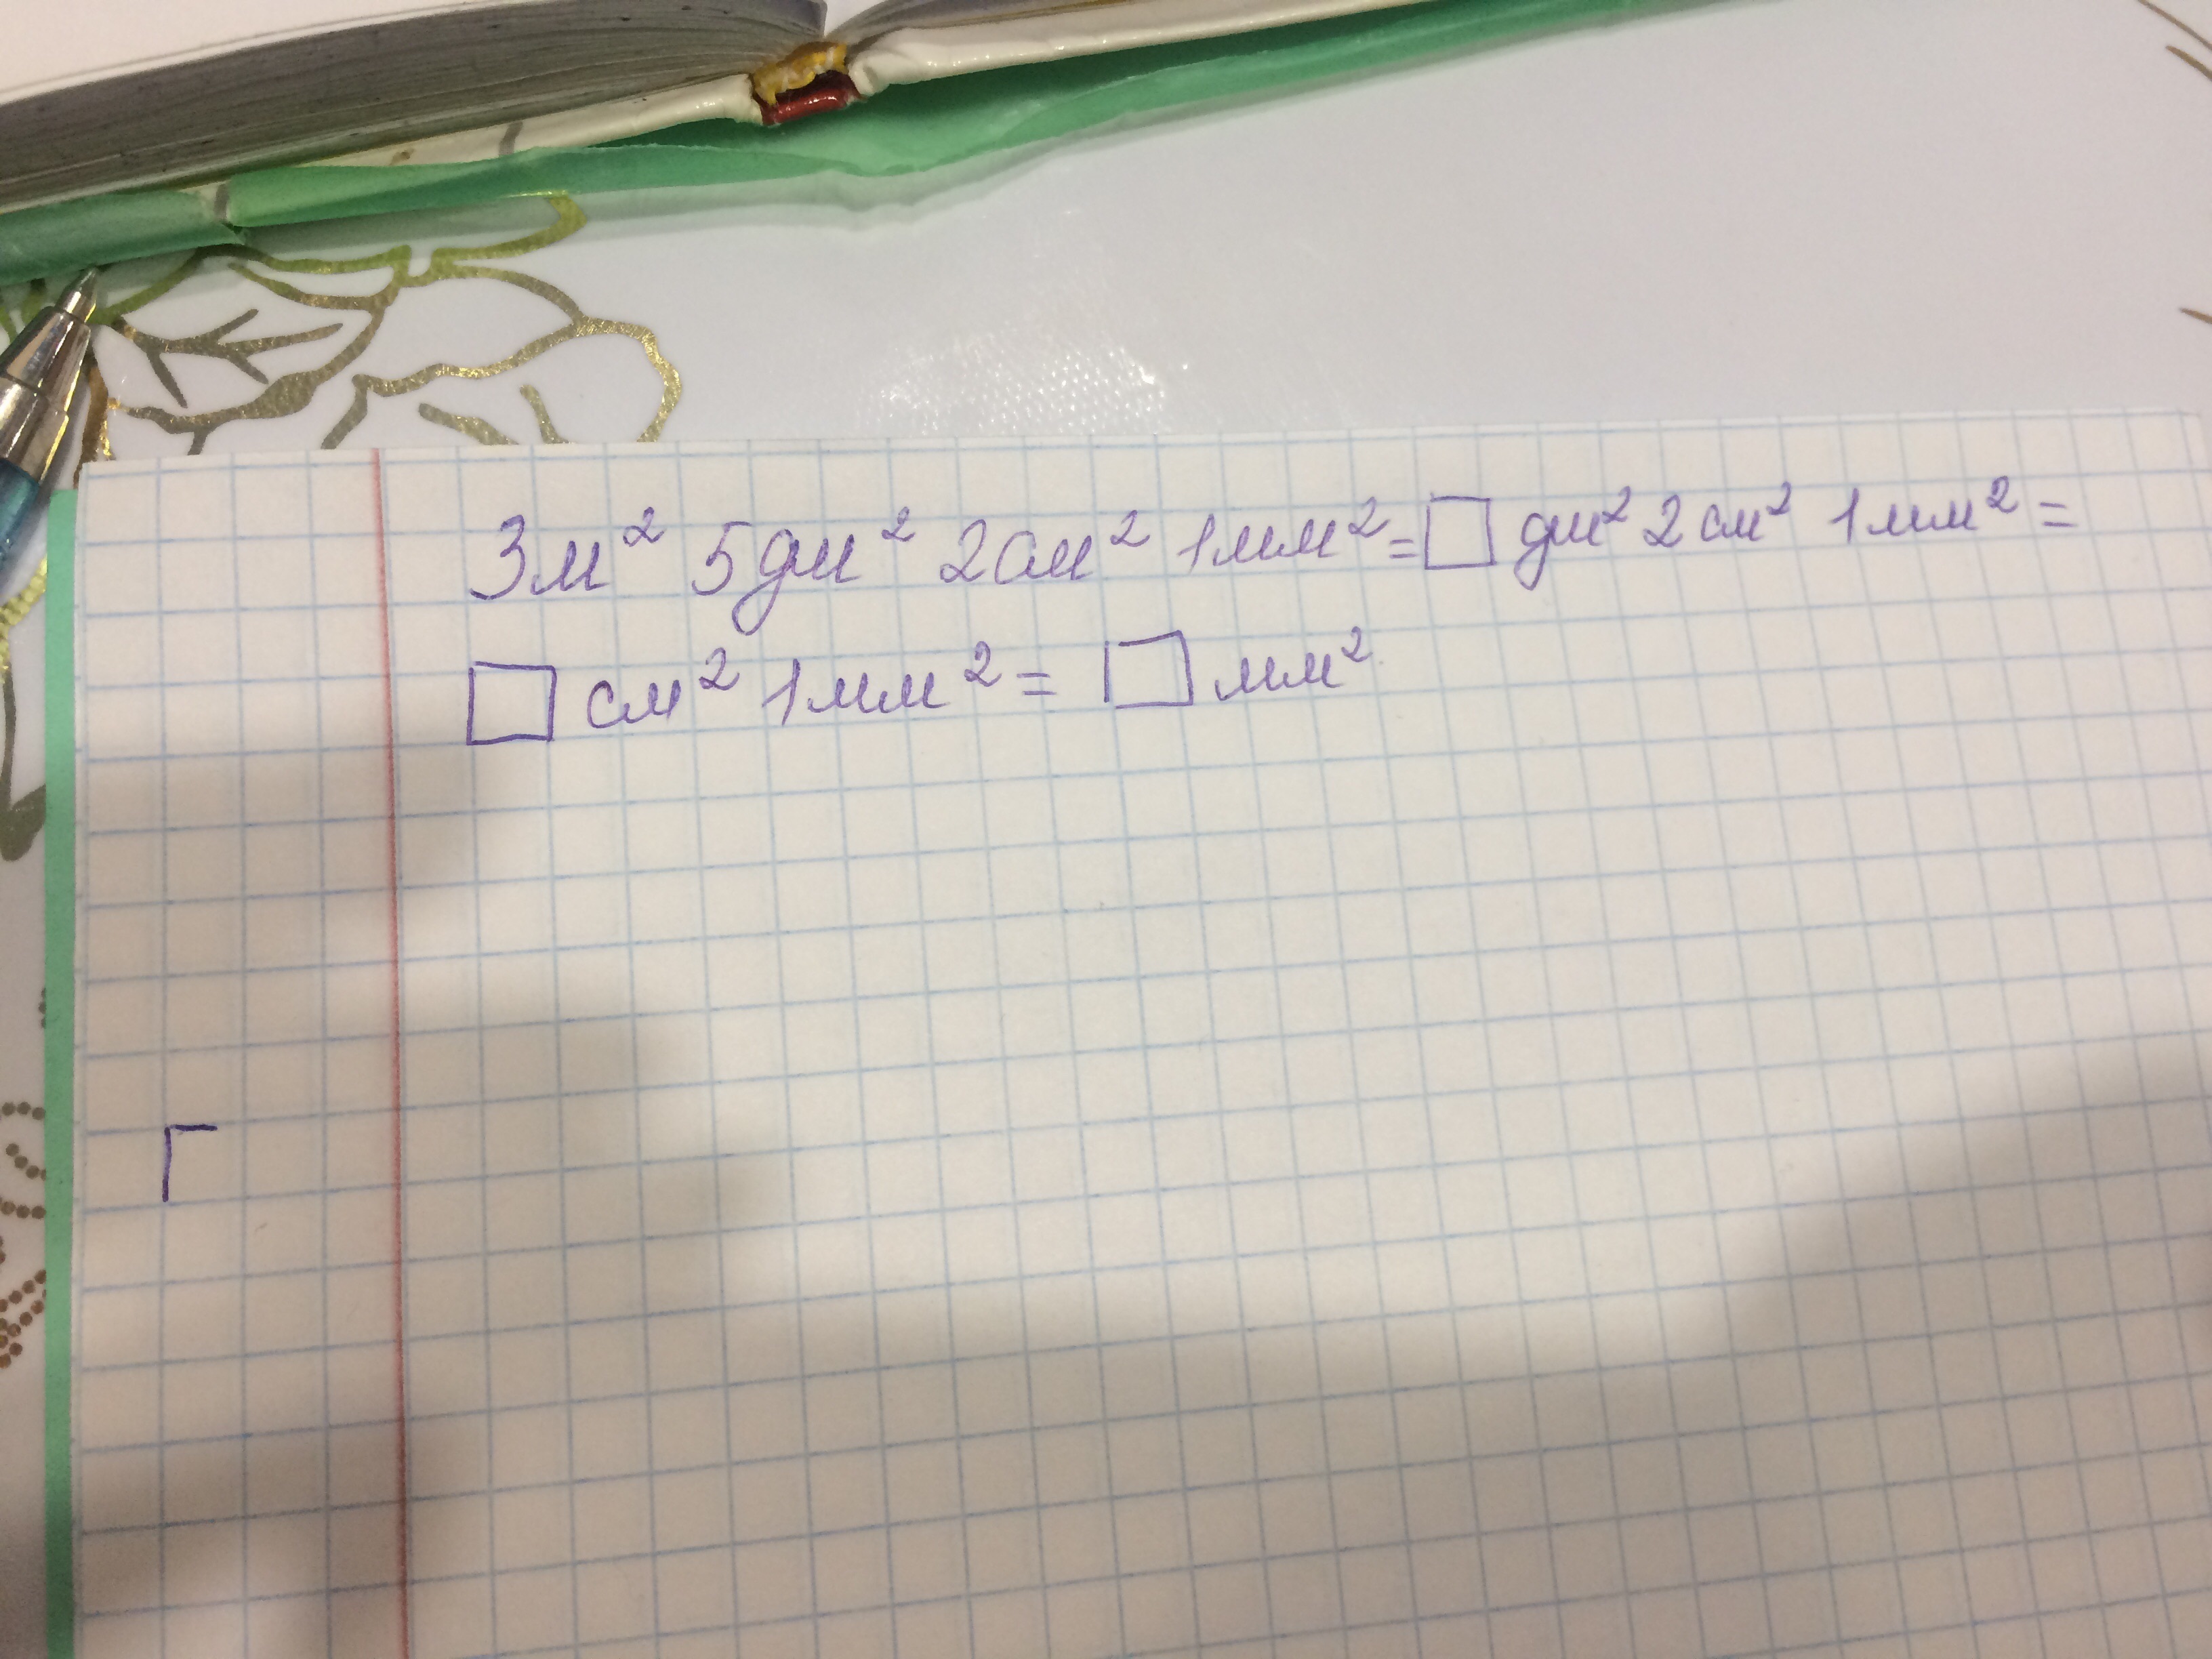 3м² 5дм² 2см² 1мм² = □ дм² 2см² 1мм² =
□ см² 1мм² = □ мм²